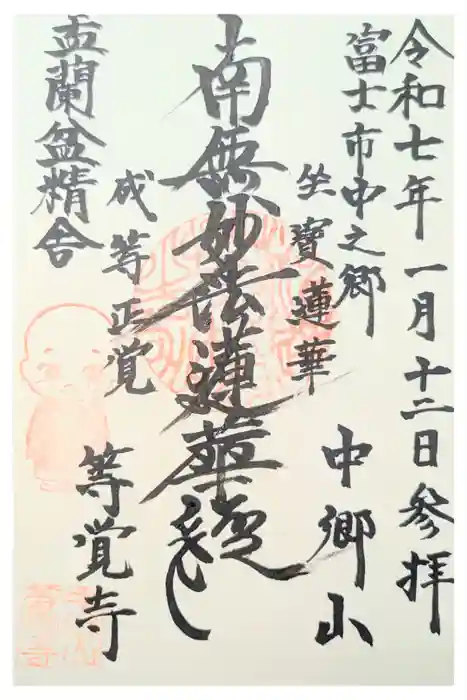 令和七年一月十二日参拝
富士市中之郷
中郷山
坐寳蓮華
南無妙法蓮華経
成等正覚
等覚寺
盂蘭盆精舎